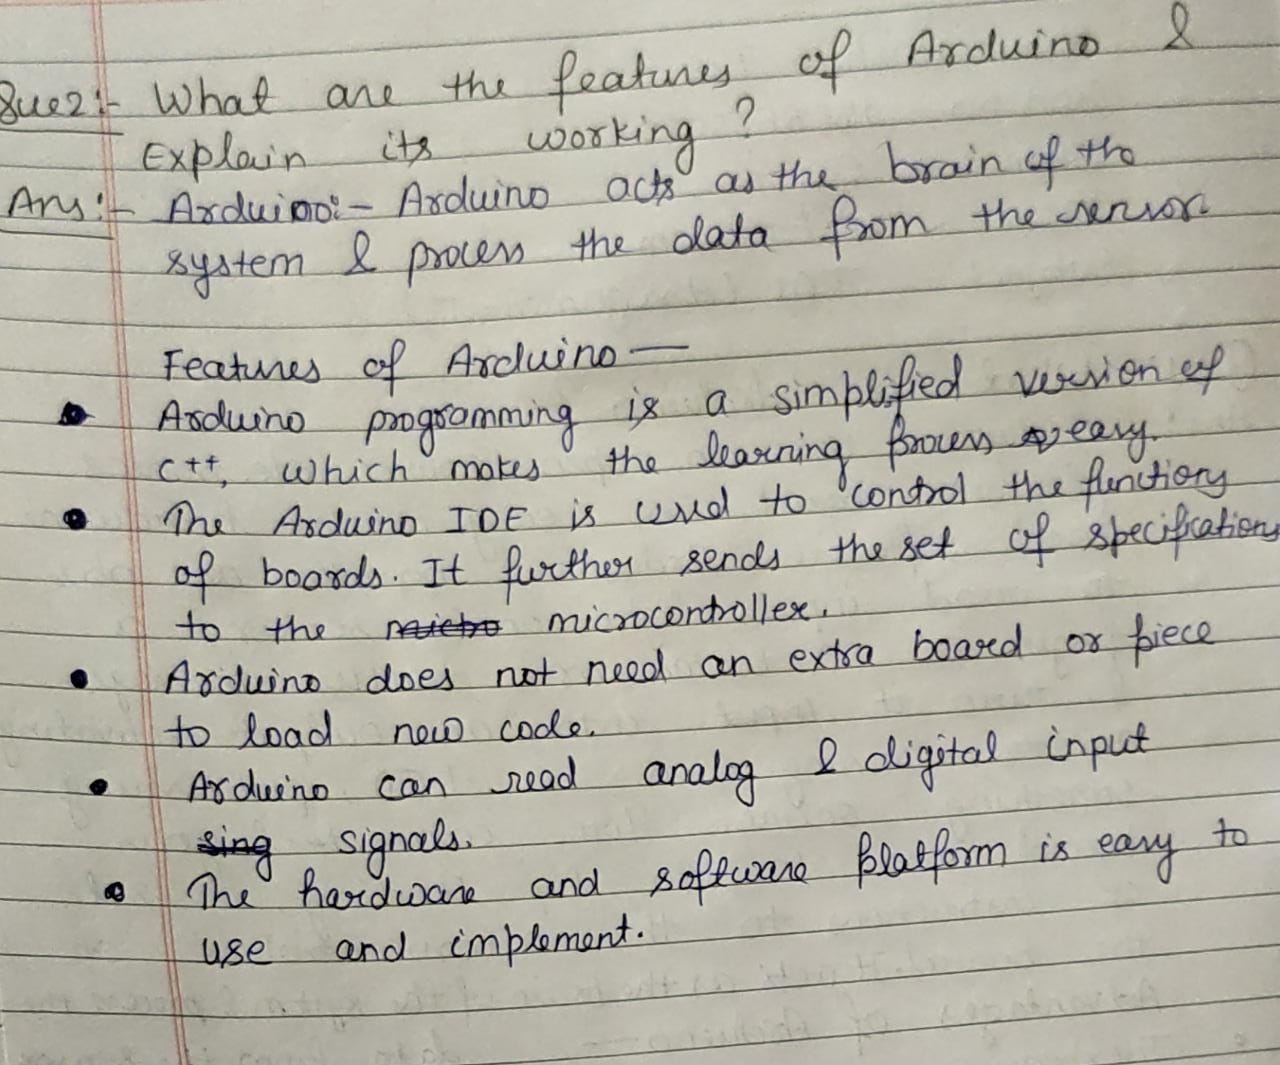 Que2:- What are the features of Arduino &
Explain its working?
Ans:- Arduino:- Arduino acts as the brain of the
system & process the data from the sensor
Features of Arduino —
• Arduino programming is a simplified version of
C++, which makes the learning process easy.
• The Arduino IDE is used to control the functions
of boards. It further sends the set of specifications
to the micro microcontroller.
• Arduino does not need an extra board or piece
to load new code.
• Arduino can read analog & digital input
sing signals.
• The hardware and software platform is easy to
use and implement.